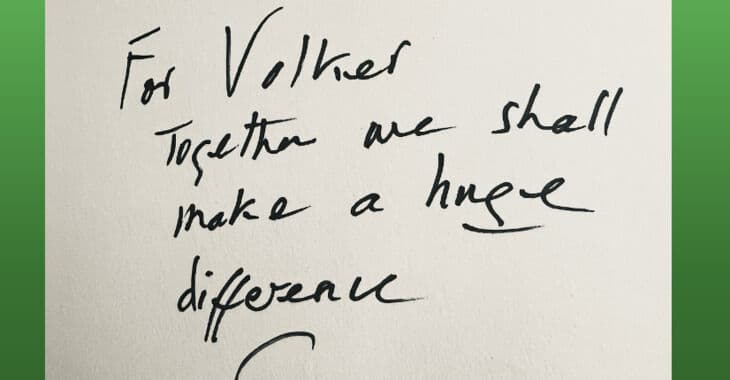 For Volker
Together we shall
make a huge
difference